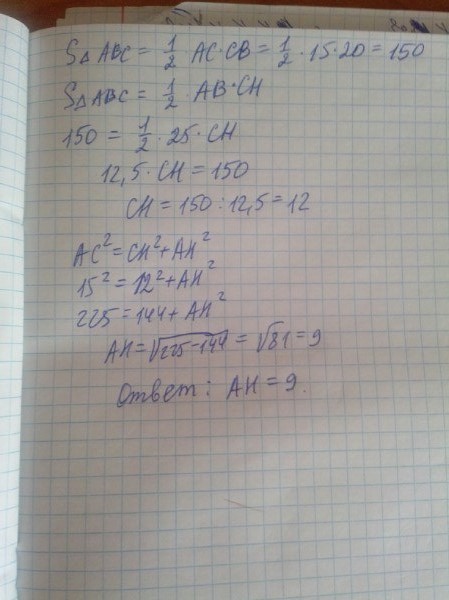 S△ABC = 1/2 AC·CB = 1/2 · 15·20 = 150
S△ABC = 1/2 · AB·CH
150 = 1/2 · 25· CH
12,5 · CH = 150
CH = 150 : 12,5 = 12
AC² = CH² + AH²
15² = 12² + AH²
225 = 144 + AH²
AH = √225-144 = √81 = 9
Ответ: AH = 9.